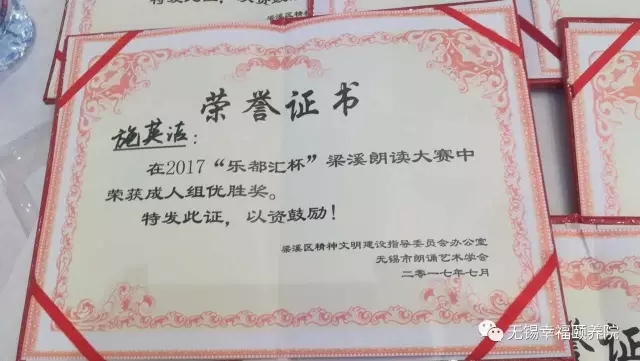 荣誉证书
施英洁：
在2017“乐都汇杯”梁溪朗读大赛中
荣获成人组优胜奖。
特发此证，以资鼓励！
梁溪区精神文明建设指导委员会办公室
无锡市朗诵艺术学会
二零一七年七月
无锡幸福颐养院